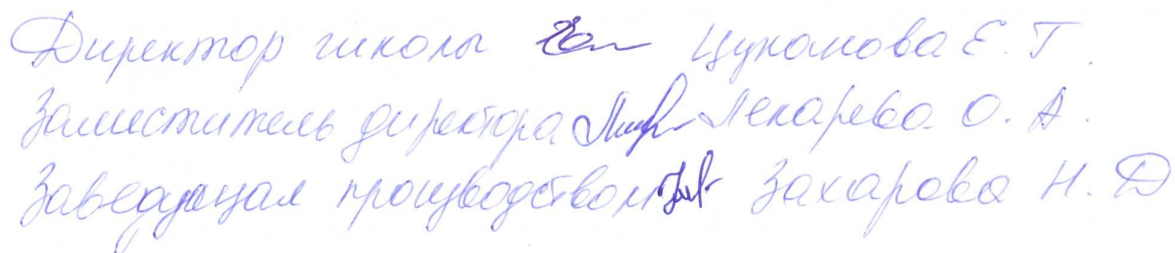 Директор школы Цуканова Е. Г.
Заместитель директора Пекарева О. А.
Заведующая производством Захарова Н. Д